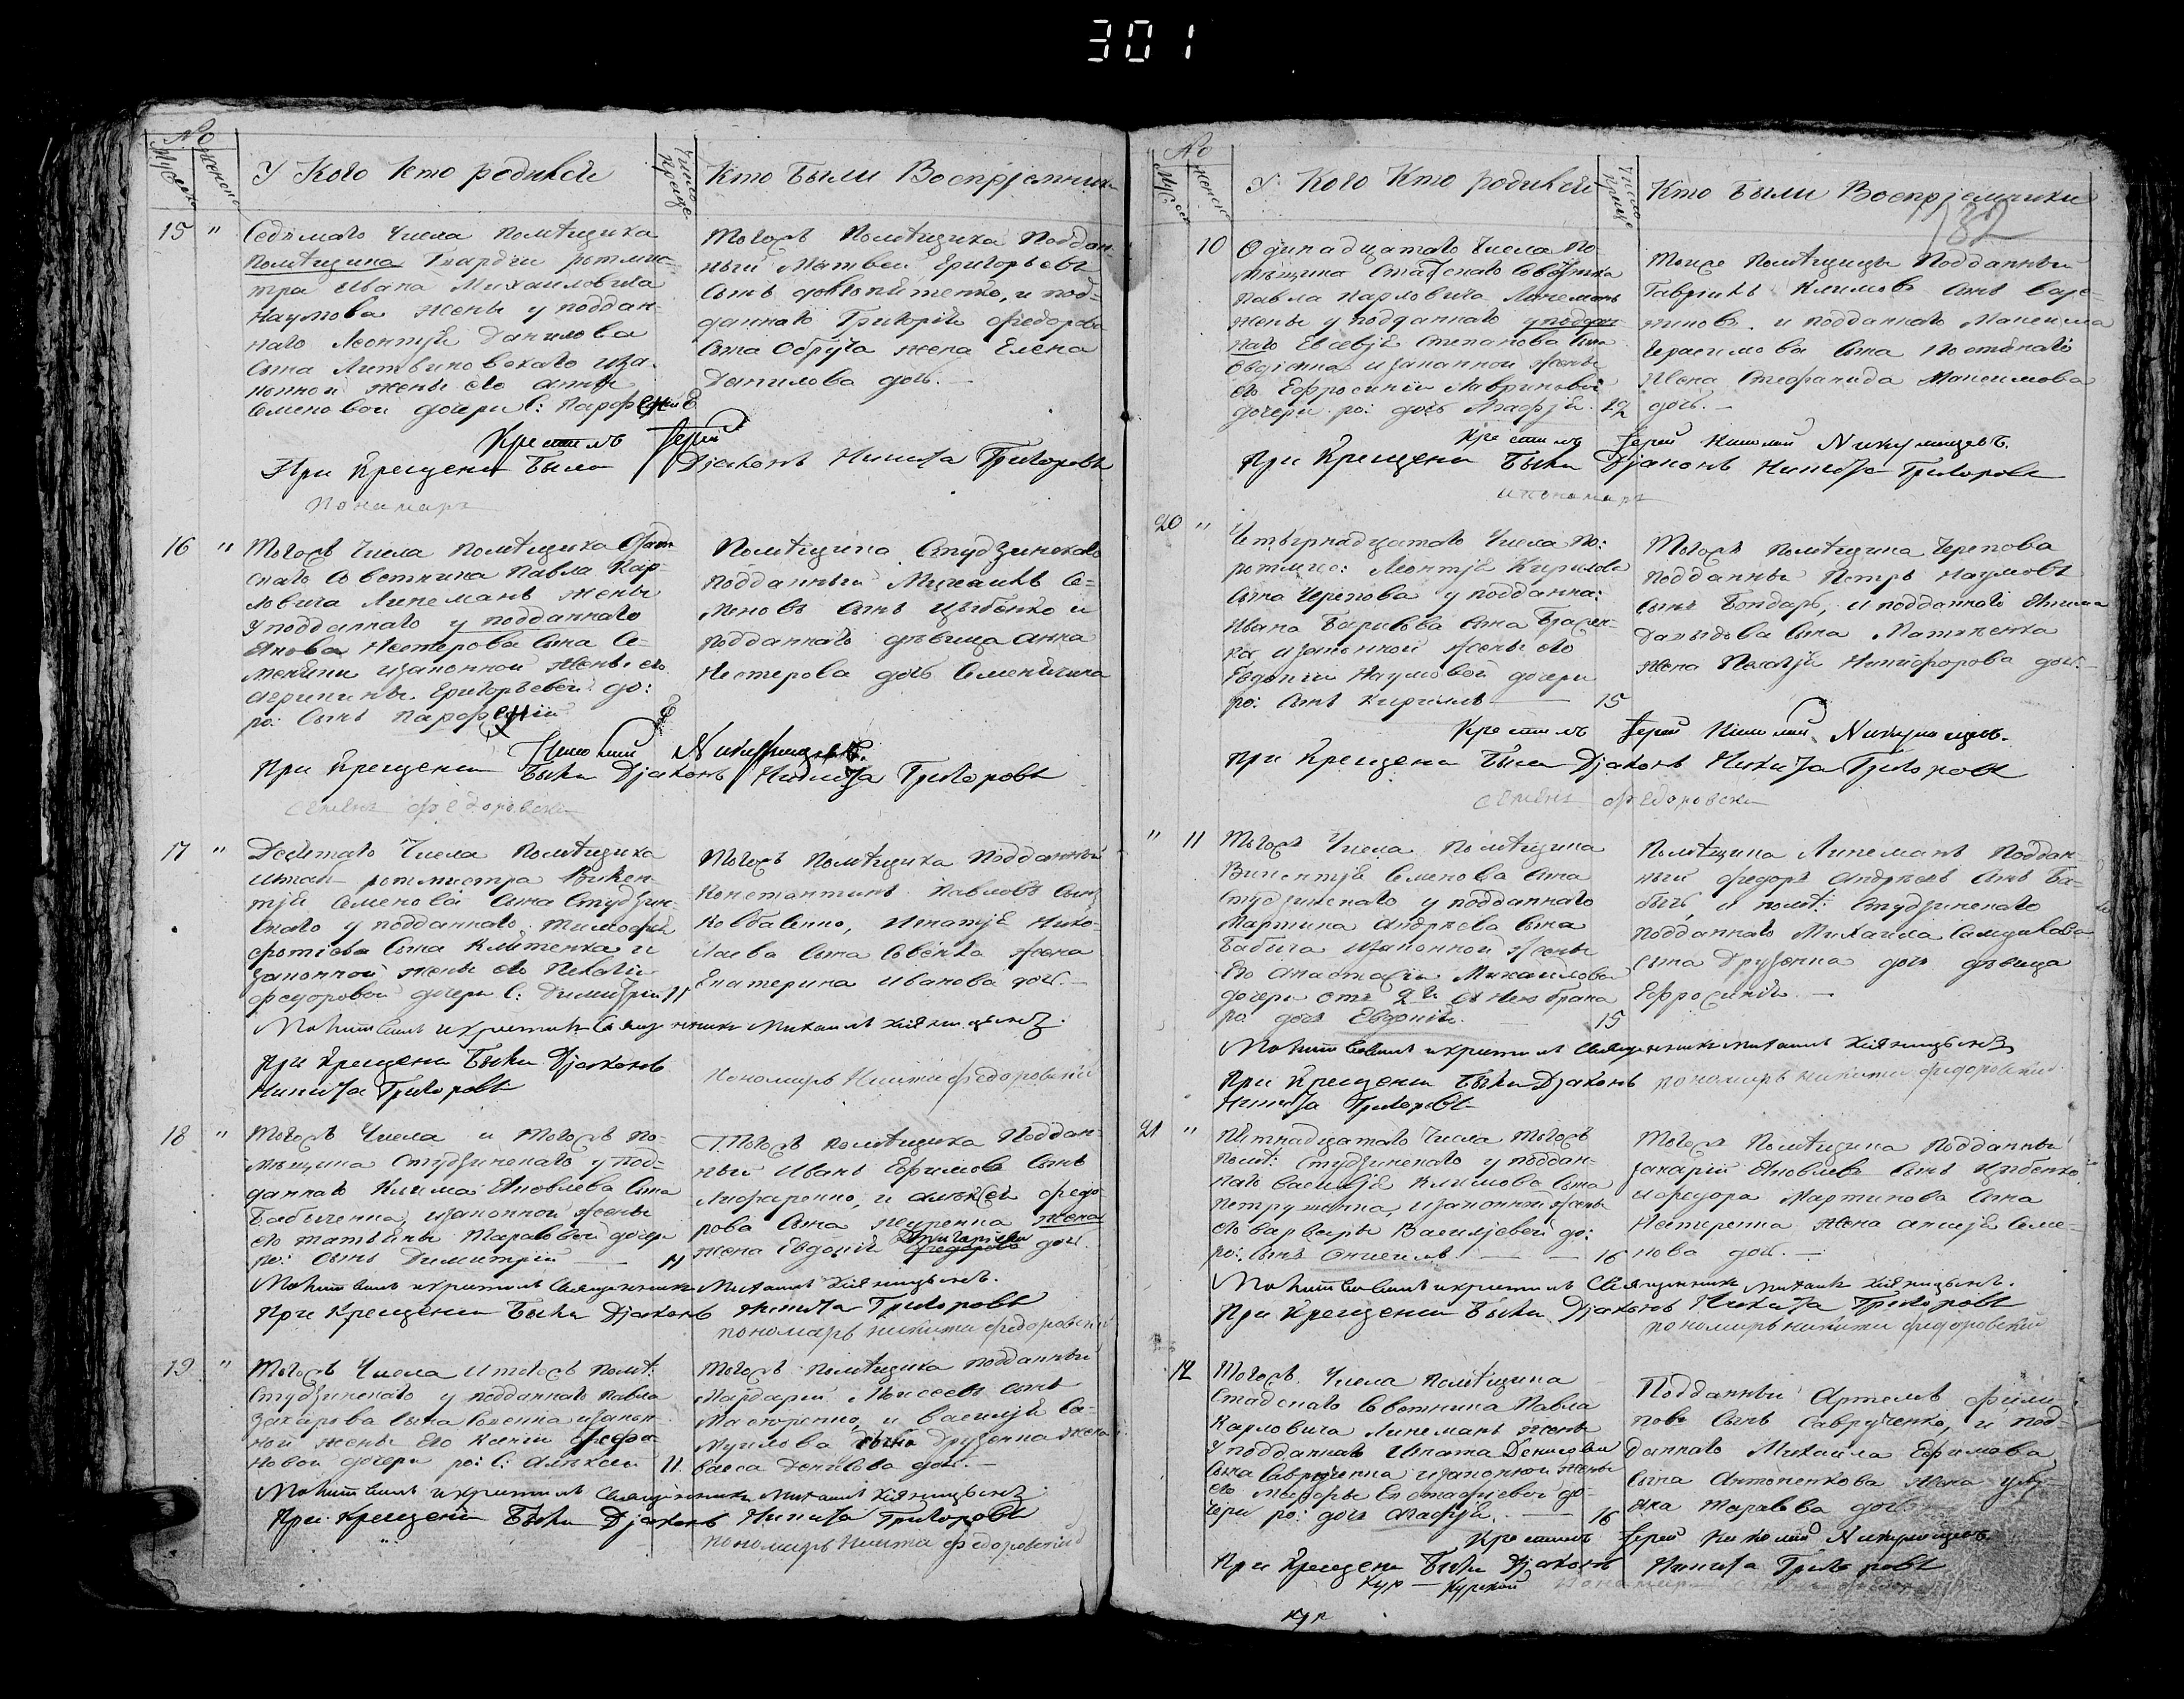 301
№
мужеска
женска
У Кого Кто родился
Число Креще
Кто Были Воспрјемники
15 "
Седьмаго Числа помѣщика
помѣщика Гвардіи ротмис=
тра Ивана Михаиловича
Наумова жены у поддан-
наго Леонтје Данилова
сына Литвиновскаго иза-
конной жены его Анны
Семеновой дочери С: Парфеній 8
Тогожъ помѣщика поддан-
ный Матвеи Григорьевъ
сынъ , и под=
даннаго Григорія Федорова
сына Обруча жена Елена
Данилова дочь.
Крестилъ Іерей
При Крещеніи Были Дјаконъ Никита Григоровъ
Пономарь
16 "
Тогожъ Числа помѣщика Стат
скаго Советника Павла Кар-
ловича Линеманъ жены
у подданнаго у подданнаго
Якова Нестерова сына Се-
менихи изаконной жены его
Агрипины Григорьевой до:
ро: сынъ Парфеній
Помѣщика Студзинскаго
подданный Михаилъ Се=
меновъ сынъ Цыбенко и
подданнаго дѣвица Анна
Нестерова дочь Семенихина
Николай Никулищевъ.
При Крещеніи Были Дјаконъ Никита Григоровъ
Семенъ Федоровски
17 "
Десятаго Числа помѣщика
штап-ротмистра Викен-
тје Семенова сына Студзин-
скаго у подданнаго Тимофея
Фотіева сына Клитенка и
законной жены его Пелагеи
Федоровой дочери С: Димитрій 11
Тогожъ помѣщика подданный
Константинъ Павловъ сынъ
Ковбасенко, Игнатје Нико-
лаева сына Совенка жена
Екатерина Иванова дочь.
Молитвовалъ и крестилъ Священникъ Михаилъ
При Крещеніи Были Дјаконъ
Никита Григоровъ
Пономарь Никита Федоровский
18 "
Тогожъ Числа и Тогожъ по-
мѣщика Студзинскаго у под-
даннаго Клима Яковлева сына
Бабыченка изаконной жены
его Татьяны Тарасовой дочери
ро: сынъ Димитрій 11
Тогожъ помѣщика поддан-
ный Иванъ Ефимовъ сынъ
Лифаренко, и Алексея Федо-
рова сына жена
жена Евдокія Григоріева Федорова дочь.
Молитвовалъ и крестилъ Священникъ Михаилъ
При Крещеніи Были Дјаконъ Никита Григоровъ
пономарь Никита Федоровский
19 "
Тогожъ Числа Итогожъ помѣ:
Студзинскаго у подданнаго Павла
Захарова сына изакон-
ной жены Его Ксеніи
новой дочери ро: С: Алексеи 11
Тогожъ помѣщика подданный
Мардарій Моисеевъ сынъ
и Василје Са-
муилова сына Друзенка жена
Васса Денисова дочь.
Молитвовалъ и крестилъ Священникъ Михаилъ
При Крещеніи Были Дјаконъ Никита Григоровъ
пономарь Никита Федоровский
№
мужеска
женска
У Кого Кто родился
Число Креще
Кто Были Воспрјемники
182
10
Одинадцатаго Числа по-
мѣщика Статскаго Советника
Павла Карловича Линеманъ
жены у подданнаго у поддан-
наго Евсевје Степанова сына
изаконной жены
его Ефросиніи Лавриновой
дочери ро: дочь Агафје. 12
Тоиже помѣщицы подданный
Гавріилъ Климовъ сынъ
и подданнаго Максима
Герасимова сына
жена Стефанида Максимова
дочь.
Крестилъ Іерей Николай Никулищевъ.
При Крещеніи Были Дјаконъ Никита Григоровъ
и пономарь
20 "
Четырнадцатаго Числа по:
ротмис: Леонтје Кирилова
сына Черепова у подданна:
Ивана Борисова сына
изаконной жены его
Евдокіи Наумовой дочери
ро: сынъ Кирилъ 15
Тогожъ помѣщика Черепова
подданны Петръ Наумовъ
сынъ Бондарь, и подданнаго Якима
Давыдова сына
жена Пелагје Никифорова дочь.
Крестилъ Іерей Николай Никулищевъ.
При Крещеніи Были Дјаконъ Никита Григоровъ
Семенъ Федоровски
" 11
Тогожъ Числа помѣщика
Викентје Семенова сына
Студзинскаго у подданнаго
Мартина Андреева сына
Бабича изаконной жены
Его Анастасіи Михаиловой
дочери отъ 2го съ нею брака
ро дочь Евдокія. 15
Помѣщика Линеманъ поддан-
ный Федоръ Андреевъ сынъ Ба-
бычъ, и помѣ: Студзинскаго
подданнаго Михаила Самуилова
сына Друзенка дочь дѣвица
Ефросинія.
Молитвовалъ и крестилъ Священникъ Михаилъ
При Крещеніи Были Дјаконъ
Никита Григоровъ
пономарь Никита Федоровский
21 "
Пятнадцатаго Числа Тогожъ
помѣ: Студзинскаго у поддан-
наго Василје Климова сына
Петрушенка, изаконной жены
его Варвары Василјевой до:
ро: сынъ Онисимъ 16
Тогожъ Помѣщика подданны
Захарій Яковлевъ сынъ Цыбенко
и Федора Мартинова сына
Нестеренка жена Семе-
нова дочь.
Молитвовалъ и крестилъ Священникъ Михаилъ
При Крещеніи Были Дјаконъ Никита Григоровъ
пономарь Никита Федоровский
12
Тогожъ Числа помѣщика
Стацкаго Советника Павла
Карловича Линеманъ жены
У подданнаго Игната Денисова
сына Саврученка изаконной жены
его Евстафіевой до-
чери ро: дочь Агафје. 16
Подданный Артемъ Фили-
повъ сынъ Саврученко, и под-
даннаго Михаила Ефимова
сына Антоненкова жена Улі-
яна Тарасова дочь
Крестилъ Іерей Николай Никулищевъ.
При Крещеніи Были Дјаконъ Никита Григоровъ
Кур — Курской
Кур